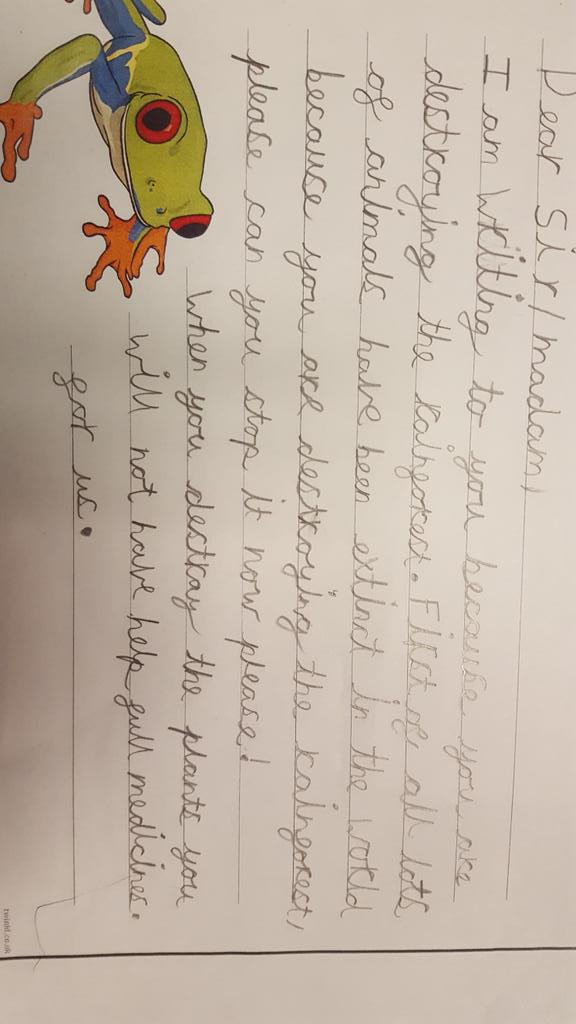 Dear Sir/madam,
I am writing to you because you are
destroying the rainforest. First of all lots
of animals have been extinct in the world
because you are destroying the rainforest,
please can you stop it now please!
When you destray the plants you
will not have help full medicines.
for us.
twinkl.co.uk